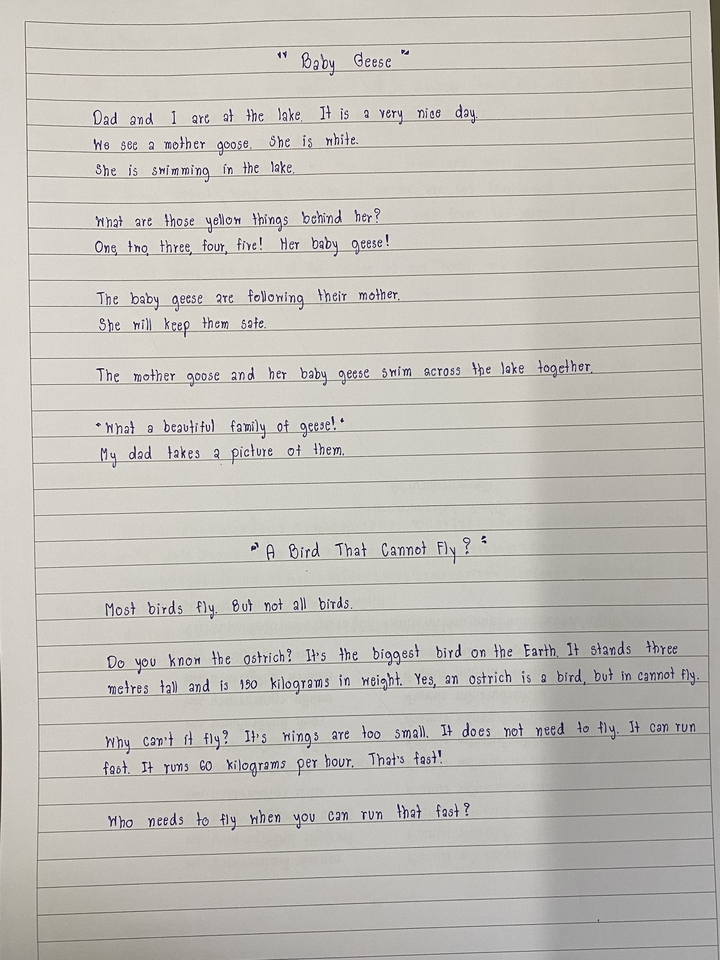 "Baby Geese"
Dad and I are at the lake. It is a very nice day.
We see a mother goose. She is white.
She is swimming in the lake.
What are those yellow things behind her?
One, two, three, four, five! Her baby geese!
The baby geese are following their mother.
She will keep them safe.
The mother goose and her baby geese swim across the lake together.
"What a beautiful family of geese!"
My dad takes a picture of them.
"A Bird That Cannot Fly?"
Most birds fly. But not all birds.
Do you know the ostrich? It's the biggest bird on the Earth. It stands three
metres tall and is 150 kilograms in weight. Yes, an ostrich is a bird, but in cannot fly.
Why can't it fly? It's wings are too small. It does not need to fly. It can run
fast. It runs 60 kilograms per hour. That's fast!
Who needs to fly when you can run that fast?